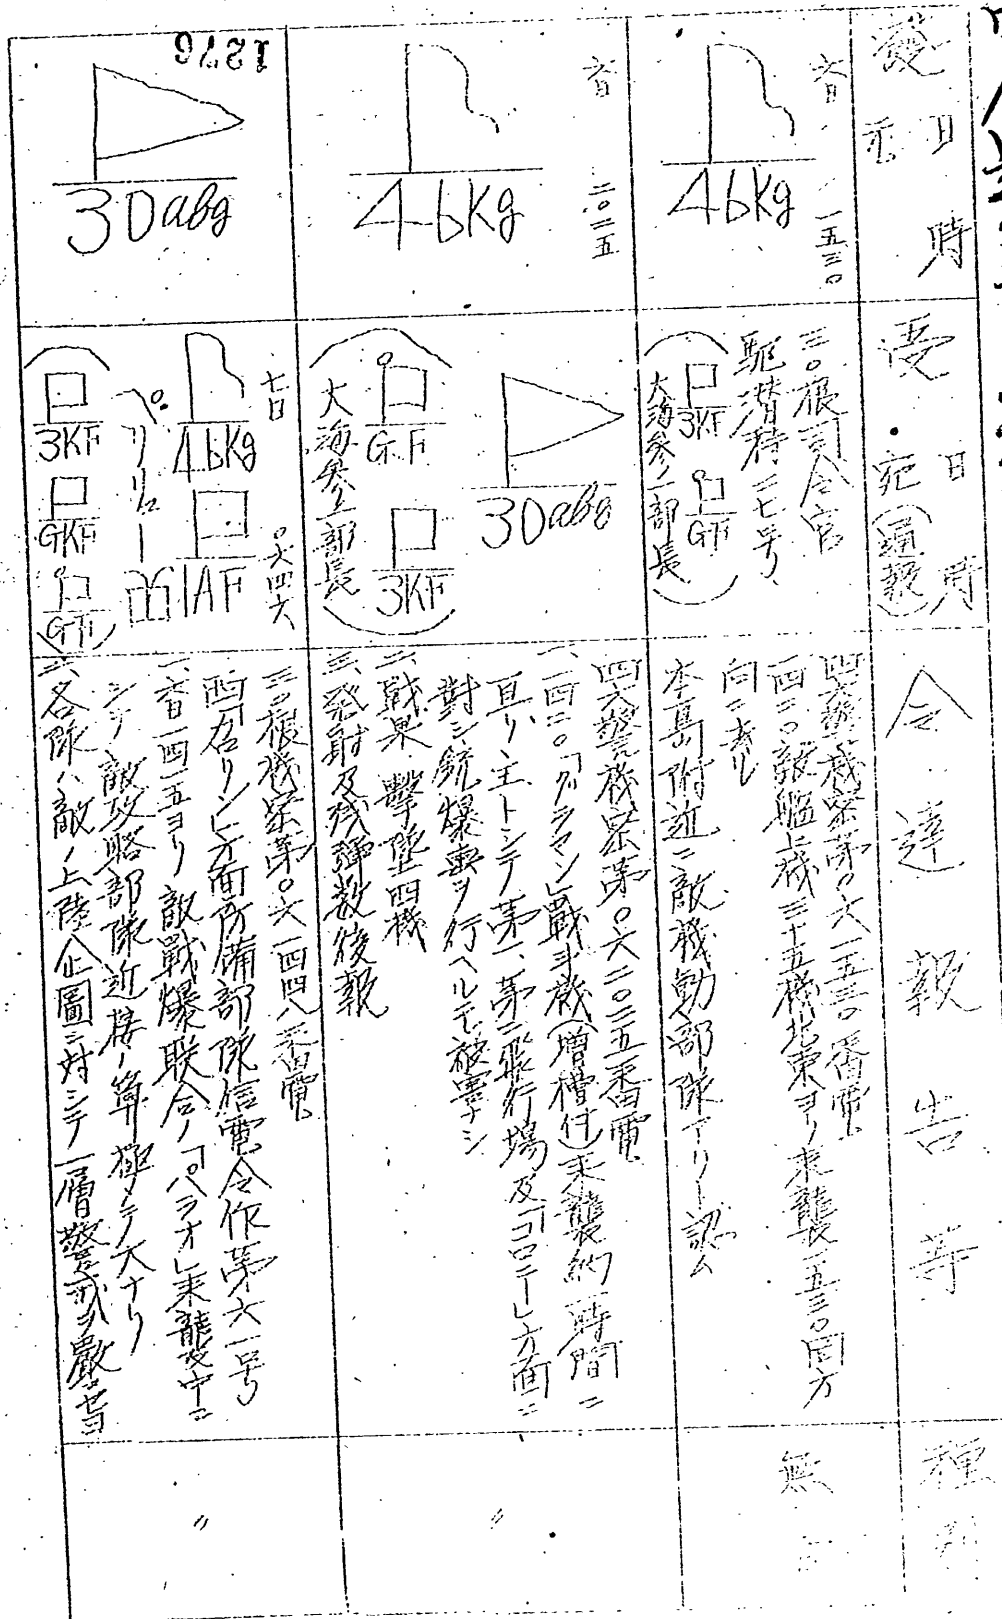 發 日 時
受 日 時
宛(通報)
令達報告等
種別
六日 一五三〇
46Kg
三〇根司令官
駆潜特二七号
3KF GF
大海参一部長
四六警機密第〇六一五三〇番電
一四二〇敵艦上機三十五機北東ヨリ来襲一五三〇同方
向ニ去ル
本島附近ニ敵機動部隊アリト認ム
無
六日 二〇二五
46Kg
30abg
GF 3KF
大海参一部長
四六警機密第〇六二〇二五番電
一、一四二〇「グラマン」戰斗機(増槽付)来襲約一時間ニ
亘リ主トシテ第一、第二飛行場及「コロニー」方面ニ
對シ銃爆撃ヲ行ヘルモ被害ナシ
二、戰果 撃墜四機
三、発射及残弾数後報
〃
1276
30abg
七日 〇六四六
46Kg 1AF
ペリリュー
3KF GKF GF
三〇根機密第〇六一四四八番電
西カロリン方面所備部隊信電令作第六一号
一、六日一四一五ヨリ敵戰爆联合ノ「パラオ」来襲中ニ
シテ敵攻略部隊近接ノ算極メテ大ナリ
二、各隊ハ敵ノ上陸企圖ニ対シテ一層警戒ヲ嚴ニセヨ
〃